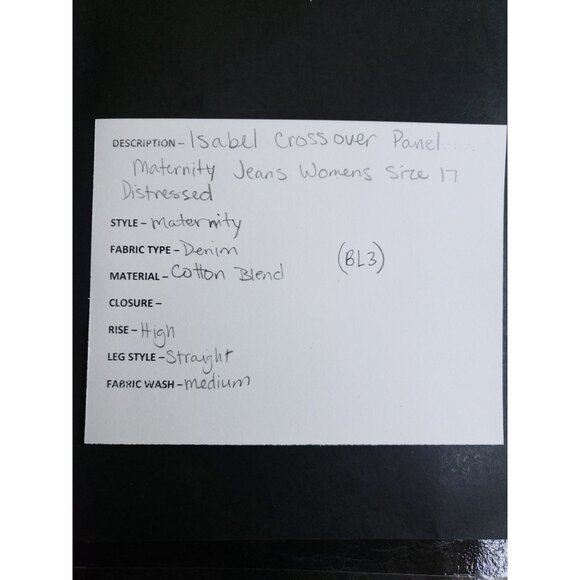 DESCRIPTION - Isabel Crossover Panel
Maternity Jeans Womens Size 17
Distressed
STYLE - Maternity
FABRIC TYPE - Denim
(BL3)
MATERIAL - Cotton Blend
CLOSURE -
RISE - High
LEG STYLE - Straight
FABRIC WASH - medium